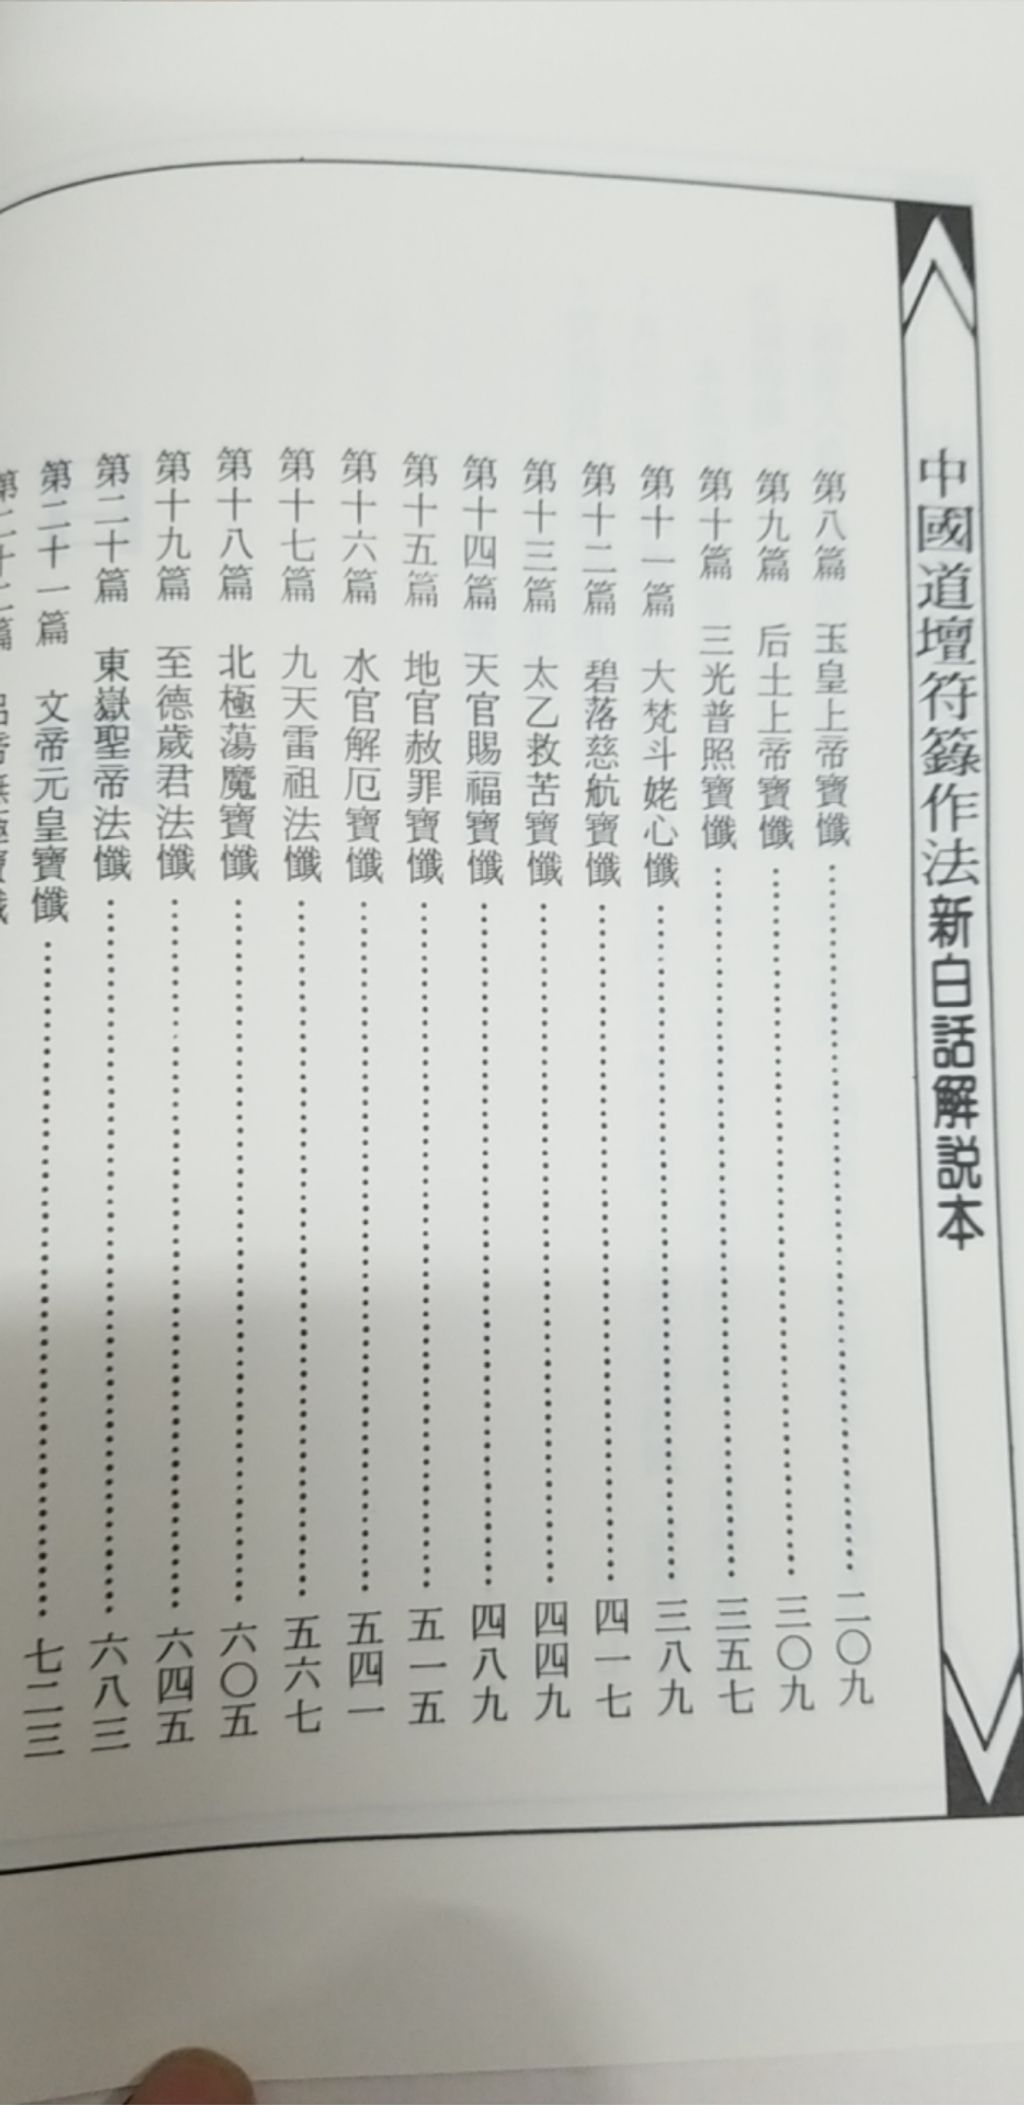 中國道壇符籙作法新白話解說本
第八篇 玉皇上帝寶懺⋯⋯二〇九
第九篇 后土上帝寶懺⋯⋯三〇九
第十篇 三光普照寶懺⋯⋯三五七
第十一篇 大梵斗姥心懺⋯⋯三八九
第十二篇 碧落慈航寶懺⋯⋯四一七
第十三篇 太乙救苦寶懺⋯⋯四四九
第十四篇 天官賜福寶懺⋯⋯四八九
第十五篇 地官赦罪寶懺⋯⋯五一五
第十六篇 水官解厄寶懺⋯⋯五四一
第十七篇 九天雷祖法懺⋯⋯五六七
第十八篇 北極蕩魔寶懺⋯⋯六〇五
第十九篇 至德歲君法懺⋯⋯六四五
第二十篇 東嶽聖帝法懺⋯⋯六八三
第二十一篇 文帝元皇寶懺⋯⋯七二三
第二十二篇